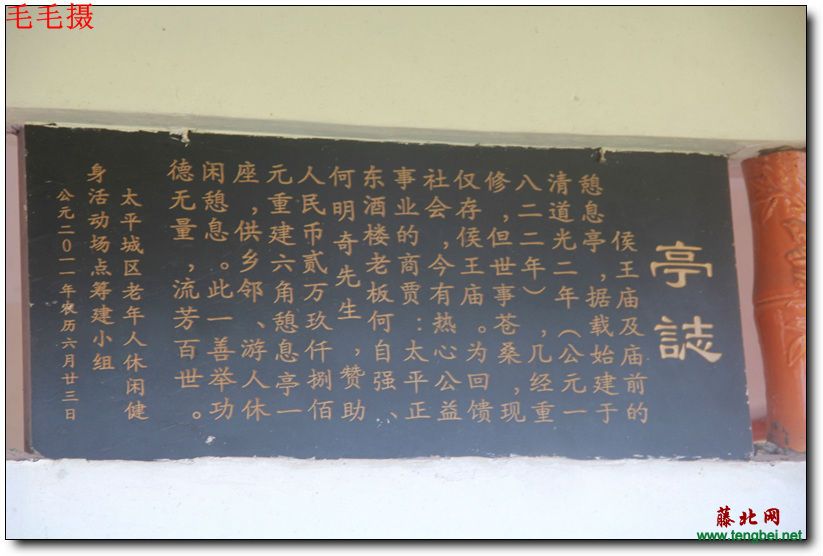 毛毛摄
亭誌
侯王庙及庙前的
憩息亭，据载始建于
清道光二年（公元一
八二二年），几经重
修，但世事苍桑，现
仅存侯王庙。为回馈
社会，今有热心公益
事业的商贾：太平正
东酒楼老板何自强、
何明奇先生，赞助
人民币贰万玖仟捌佰
元重建六角憩息亭一
座，供乡邻、游人休
闲憩息。此一善举功
德无量，流芳百世。
太平城区老年人休闲健
身活动场点筹建小组
公元二0一一年农历六月廿三日
藤北网
www.tengbei.net